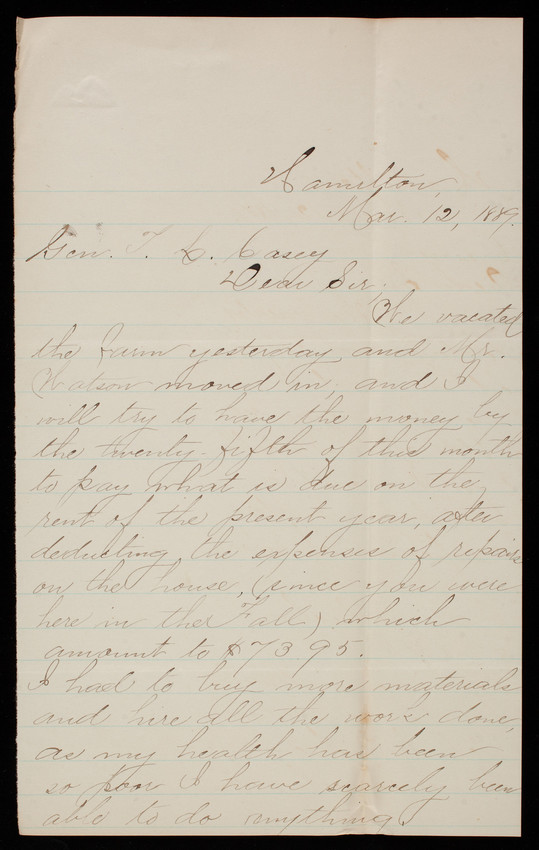 Hamilton,
Mar. 12, 1889.
Gen. T. L. Casey
Dear Sir,
We vacated
the farm yesterday, and Mr.
Watson moved in, and I
will try to have the money by
the twenty-fifth of this month
to pay what is due on the
rent of the present year, after
deducting the expenses of repairs
on the house, (since you were
here in the Fall,) which
amount to $73 95.
I had to buy more materials
and hire all the work done,
as my health has been
so poor I have scarcely been
able to do anything.